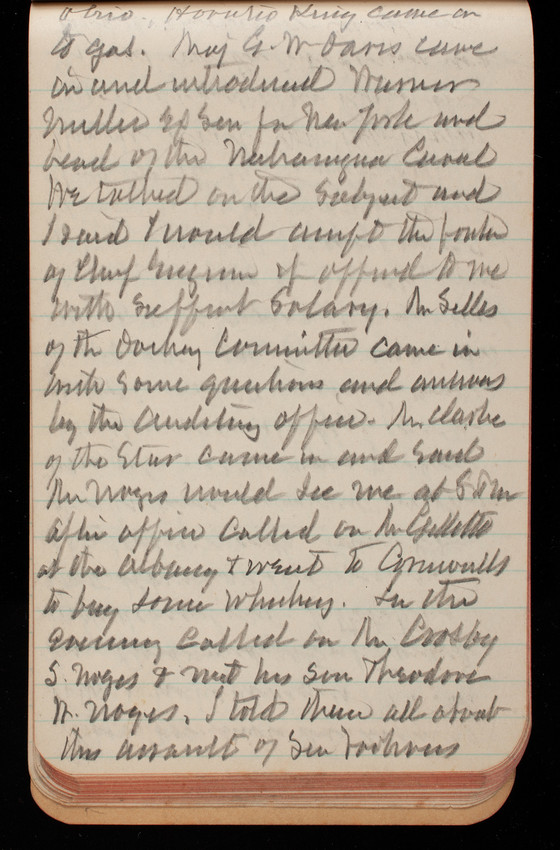 Ohio. Horatio King came in
to gas. Maj G. W Davis came
in and introduced Warner
Miller Ex Sen for New York and
head of the Nicaragua Canal
We talked on the subject and
I said I would accept the
of Chief Engineer if offered to me
with Salary. Mr
of the Dockery Committee came in
with some questions and answers
by the Auditing office. Mr Clarke
of the Star came in and said
Mr Noyes would see me at 8 PM
After office called on Mr Gillette
at the Albany & went to Cornwells
to buy some Whiskey. In the
Evening called on Mr Crosby
S. Noyes & met his son Theodore
W. Noyes. I told them all about
this assault of Sen Voorhees